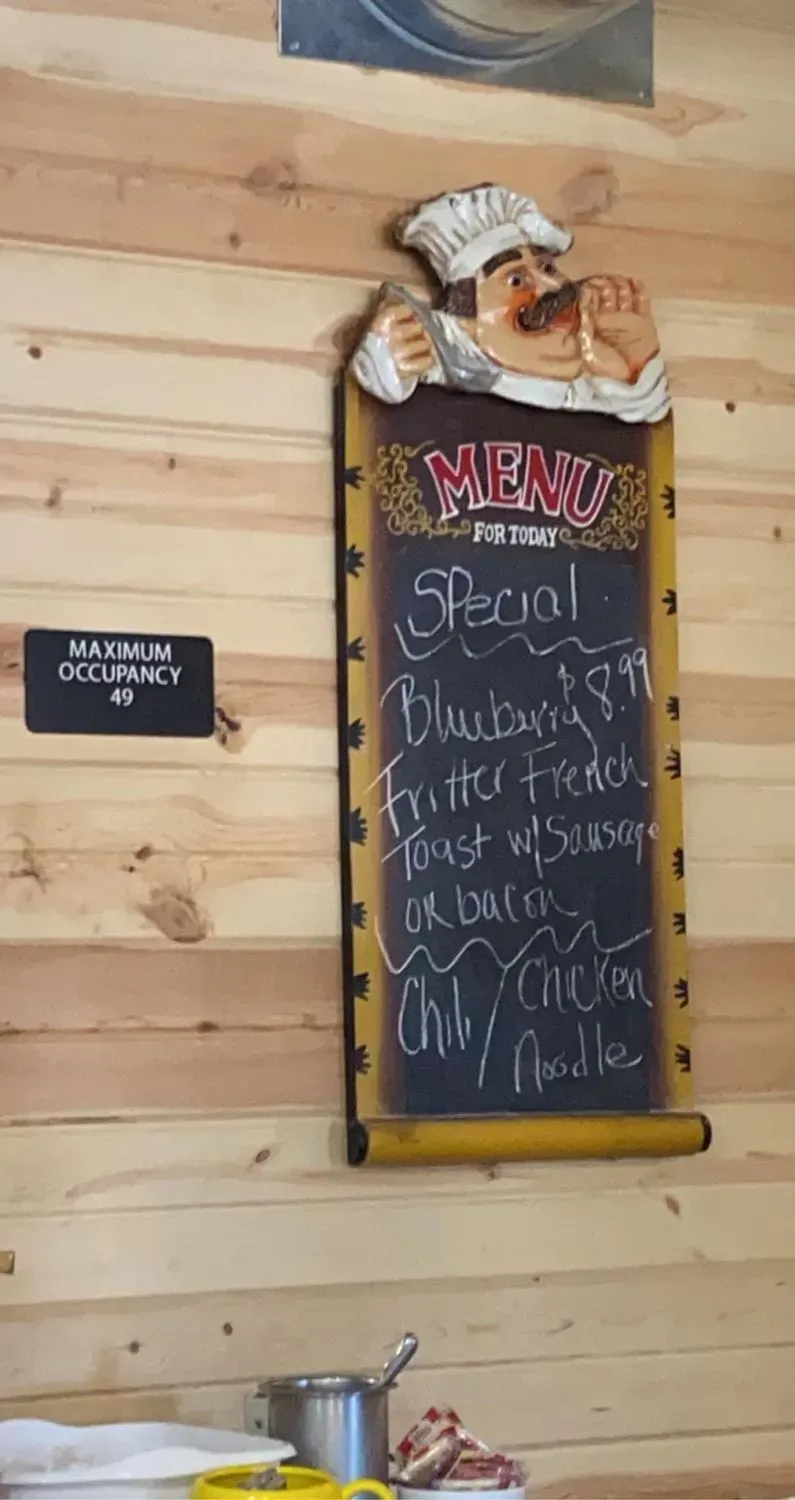 MENU
FOR TODAY
Special
Blueberry $8.99
Fritter French
Toast w/Sausage
or bacon
Chili / Chicken
Noodle
MAXIMUM
OCCUPANCY
49